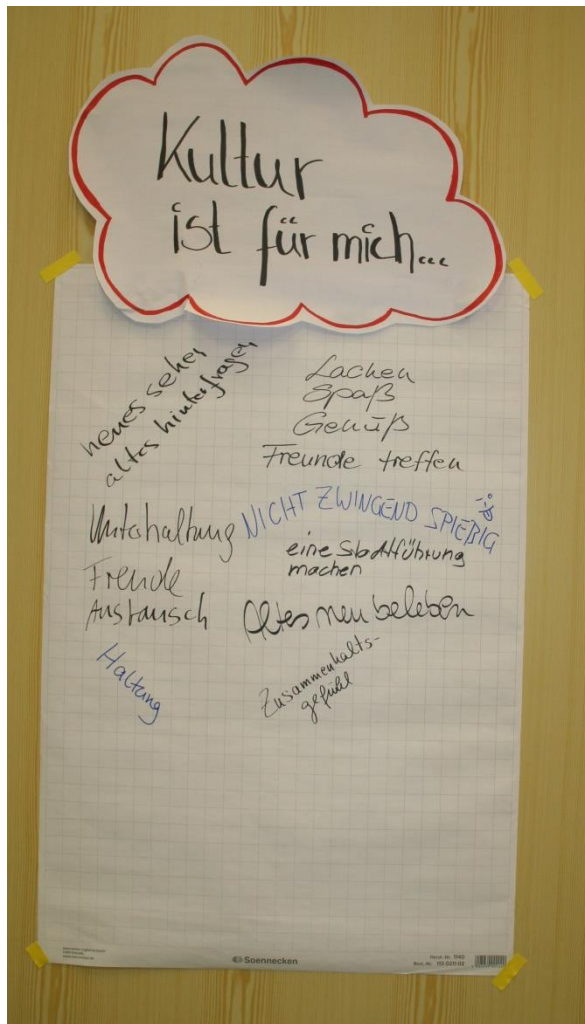 Kultur
ist für mich...
neues sehen
altes hinterfragen
Lachen
Spaß
Genuß
Freunde treffen
NICHT ZWINGEND SPIEßIG
Unterhaltung
eine Stadtführung
machen
Freude
Austausch
Altes neu beleben
Haltung
Zusammenhalts-
gefühl
Soennecken